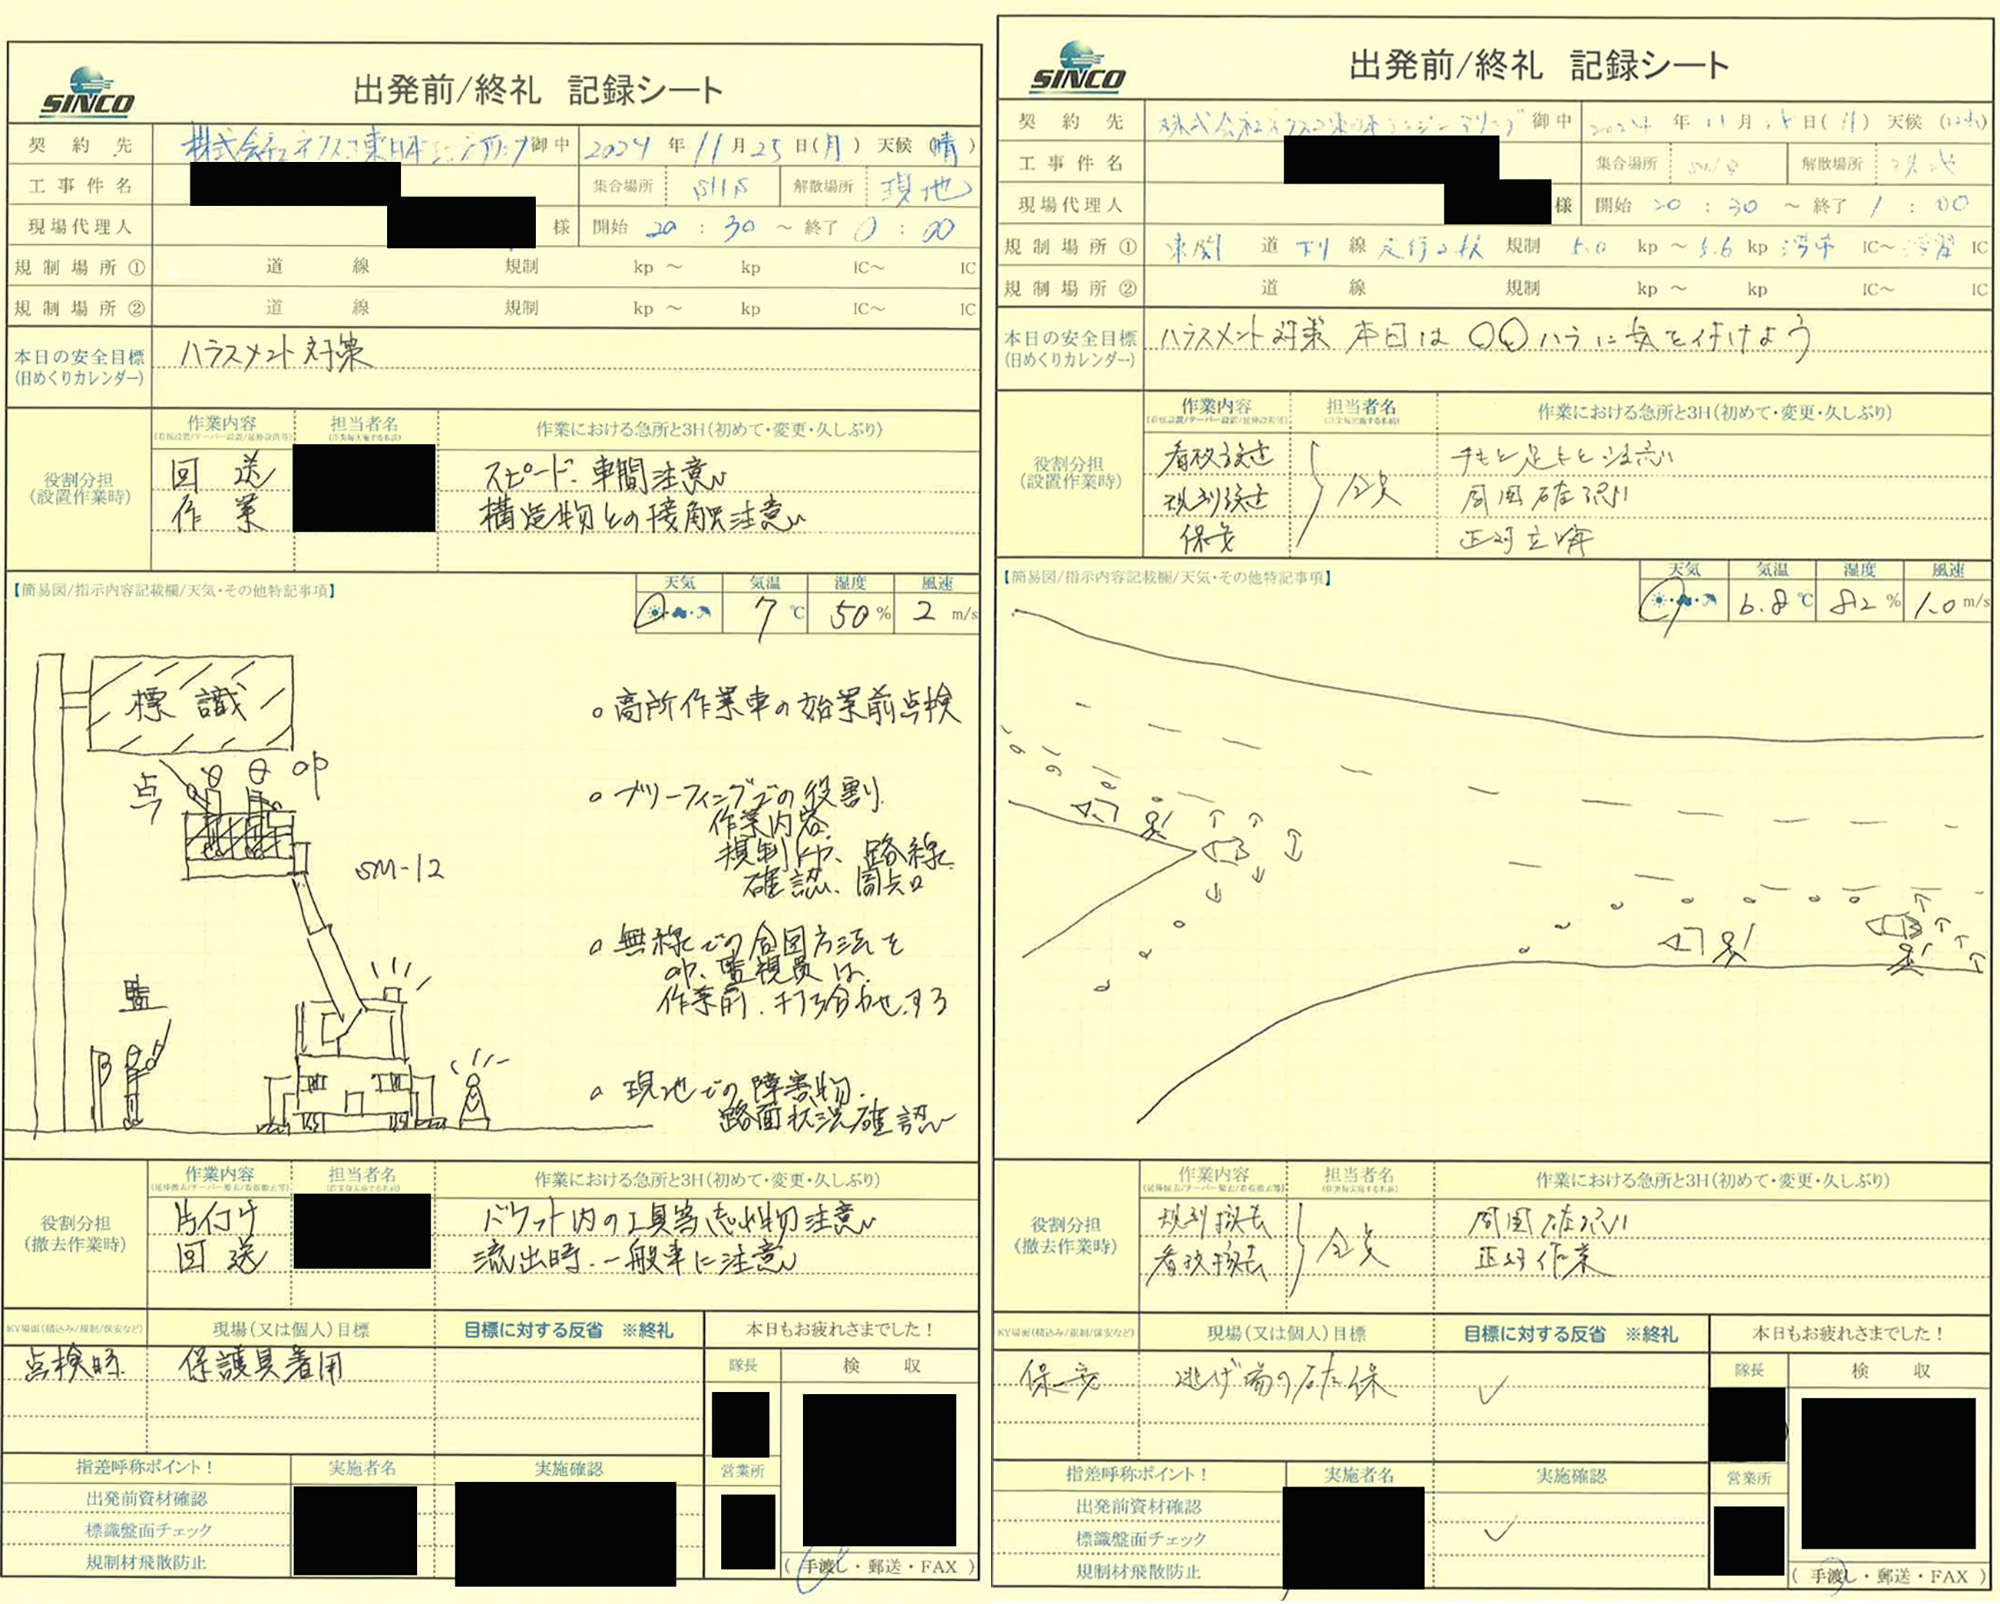 SINCO
出発前/終礼 記録シート
契約先 株式会社ネクスコ東日本エンジニアリング御中 2024年11月25日(月) 天候(晴)
工事件名 集合場所 解散場所 現地
現場代理人 様 開始 20:30 ～終了 0:00
規制場所① 道 線 規制 kp ～ kp IC～ IC
規制場所② 道 線 規制 kp ～ kp IC～ IC
本日の安全目標 ハラスメント対策
(日めくりカレンダー)
作業内容 担当者名 作業における急所と3H(初めて・変更・久しぶり)
役割分担
(設置作業時)
回送 スピード、車間注意
作業 構造物との接触注意
【簡易図/指示内容記載欄/天気・その他特記事項】
天気 気温 湿度 風速
7℃ 50% 2 m/s
標識
点 op
SM-12
監
○高所作業車の始業前点検
○ブリーフィングでの役割、
作業内容、
規制kp、路線
確認、周知
○無線での合図方法を
op、監視員は、
作業前、打ち合わせする
○現地での障害物、
路面状況確認
作業内容 担当者名 作業における急所と3H(初めて・変更・久しぶり)
役割分担
(撤去作業時)
片付け バケット内の工具等忘れ物注意
回送 流出時、一般車に注意
KY場面(積込み/規制/保安など) 現場(又は個人)目標 目標に対する反省 ※終礼 本日もお疲れさまでした！
点検時 保護具着用
隊長 検収
指差呼称ポイント！ 実施者名 実施確認 営業所
出発前資材確認
標識盤面チェック
規制材飛散防止
(手渡し・郵送・FAX)
SINCO
出発前/終礼 記録シート
契約先 株式会社ネクスコ東日本エンジニアリング御中 2024年11月 日(月) 天候
工事件名 集合場所 解散場所
現場代理人 様 開始 20:30 ～終了 1:00
規制場所① 東関 道 下り 線 走行 規制 5.0 kp ～ 5.6 kp IC～ IC
規制場所② 道 線 規制 kp ～ kp IC～ IC
本日の安全目標 ハラスメント対策 本日は○○ハラに気を付けよう
(日めくりカレンダー)
作業内容 担当者名 作業における急所と3H(初めて・変更・久しぶり)
役割分担
(設置作業時)
看板設置 手もと足もと注意
規制設置 全員 周囲確認
保安 正対立哨
【簡易図/指示内容記載欄/天気・その他特記事項】
天気 気温 湿度 風速
6.8℃ 82% 1.0 m/s
作業内容 担当者名 作業における急所と3H(初めて・変更・久しぶり)
役割分担
(撤去作業時)
規制撤去 周囲確認
全員
看板撤去 正対作業
KY場面(積込み/規制/保安など) 現場(又は個人)目標 目標に対する反省 ※終礼 本日もお疲れさまでした！
保安 逃げ場の確保
隊長 検収
指差呼称ポイント！ 実施者名 実施確認 営業所
出発前資材確認
標識盤面チェック
規制材飛散防止
(手渡し・郵送・FAX)